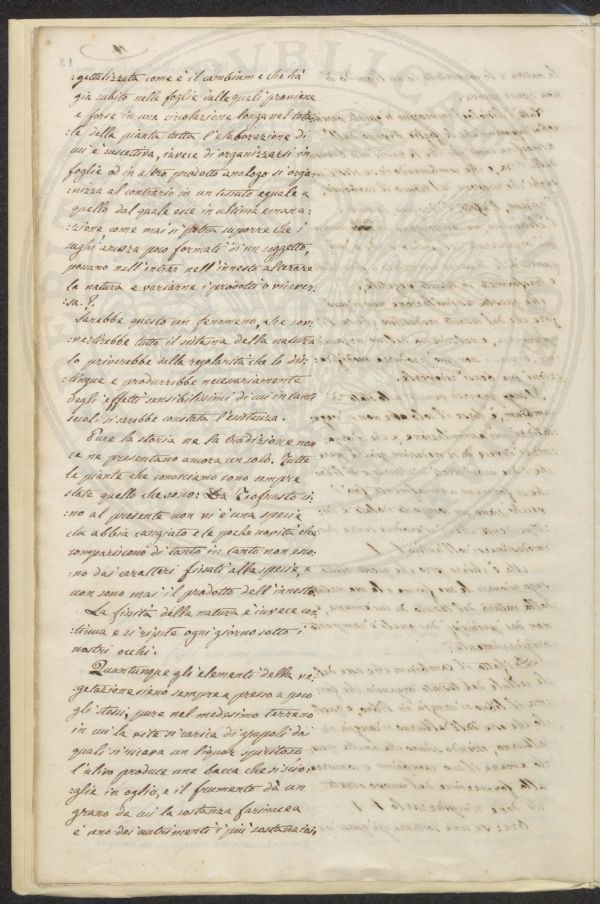 :getalizzata come è il cambium e che há
gia subito nelle foglie dalle quali proviene
e forse in una circolazione longa nel tota:
:le della pianta tutta l'elaborazione di
cui è suscettiva, invece di organizzarsi in
foglie od in altro prodotto analogo si orga:
:nizza al contrario in un tessuto eguale a
quello dal quale esce in ultima emana:
:zione, come mai si potra supporre che i
sughi ancora poco formati di un soggetto,
possano nell'entrar nell'innesto alterare
la natura e variarne i prodotti o vicever:
:sa.?.
Sarebbe questo un fenomeno, che sov:
:vertirebbe tutto il sistema della natura
lo priverebbe della regolarità che lo dis:
:tingue e produrrebbe necessariamente
degli effetti sensibilissimi di cui in tanti
secoli si sarebbe constata l'esistenza.
Pure la storia ne la tradizione non
ce ne presentano ancora un solo. Tutte
le piante che conosciamo sono sempre
state quello che sono: Da Teofrasto si:
:no al presente non vi è una specie
che abbia cangiato e le poche novità che
compariscono di tanto in tanto non esco:
:no dai caratteri fissati alla specie, e
non sono mai il prodotto dell'innesto.
La fissità della natura è invece con:
:tinua e si ripete ogni giorno sotto i
nostri occhi.
Quantunque gli elementi della ve:
:getazione sieno sempre a presso a poco
gli stessi, pure nel medesimo terreno
in cui la vite si carica di grapoli dai
quali si ricava un liquor spiritoso
l'ulivo produce una bacca che si scio:
:glie in oglio, e il frumento dà un
grano da cui la sostanza farinacea
è uno dei nutrimenti i più sostanziosi